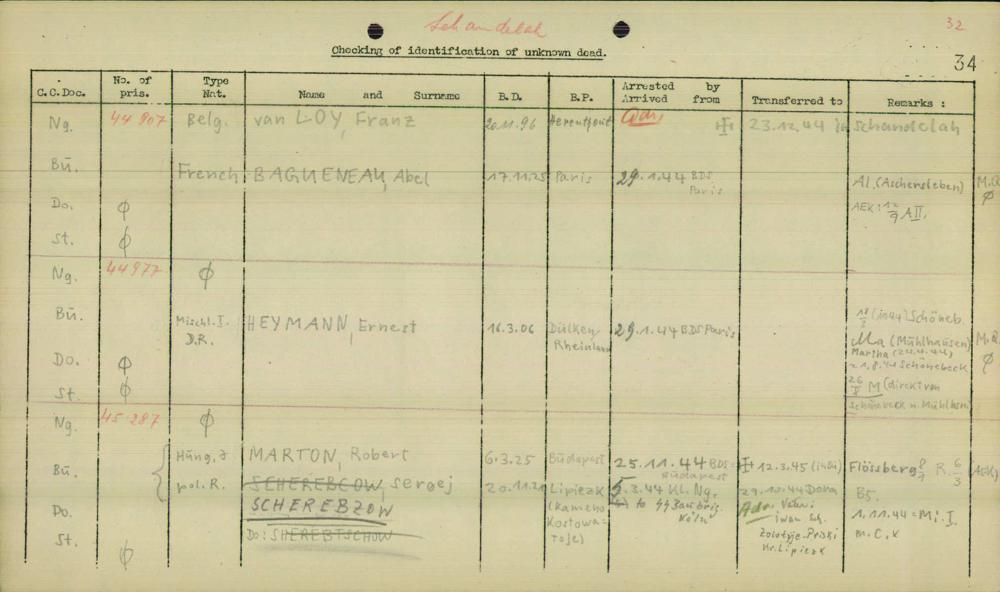 Schandelah
32
Checking of identification of unknown dead.
34
C.C.Doc. No. of pris. Type Nat. Name and Surname B.D. B.P. Arrested by Arrived from Transferred to Remarks :
Ng. 44 907 Belg. van LOY, Franz 20.11.96 Herenthout 23.12.44 in Schandelah
Bü. French BAGUENEAU, Abel 17.11.25 Paris 29.1.44 BDS Paris Al. (Aschersleben) M.Q. ϕ
AEK: 12/9 A II.
Do. ϕ
St. ϕ
Ng. 44977 ϕ
Bü. Mischl. I. D.R. HEYMANN, Ernest 16.3.06 Dülken, Rheinland 29.1.44 BDS Paris Schöneb.
Ma (Mühlhausen) M.Q. ϕ
Martha (24.4.44)
1.8.44 Schönebeck
26/8 M (direkt von
Schönebeck n. Mühlhsn)
Do. ϕ
St. ϕ
Ng. 45 287 ϕ
Bü. Hung. J. MARTON, Robert 6.3.25 Budapest 25.11.44 BDS Budapest 12.3.45 Flössberg R. 6/3 (AEK)
pol. R. SCHEREBCOW, Sergej Lipiezk 5.3.44 Kl. Ng. 29.10.44 Dora B5.
SCHEREBZOW (Kameno to SS Baubrig. Köln Adr. Vater: 1.11.44 = Mi. I.
Do. Kostowa- Iwan Sch. m. C. x
toje)
Do: SHEREBTSCHOW
St. ϕ Kr. Lipiezk